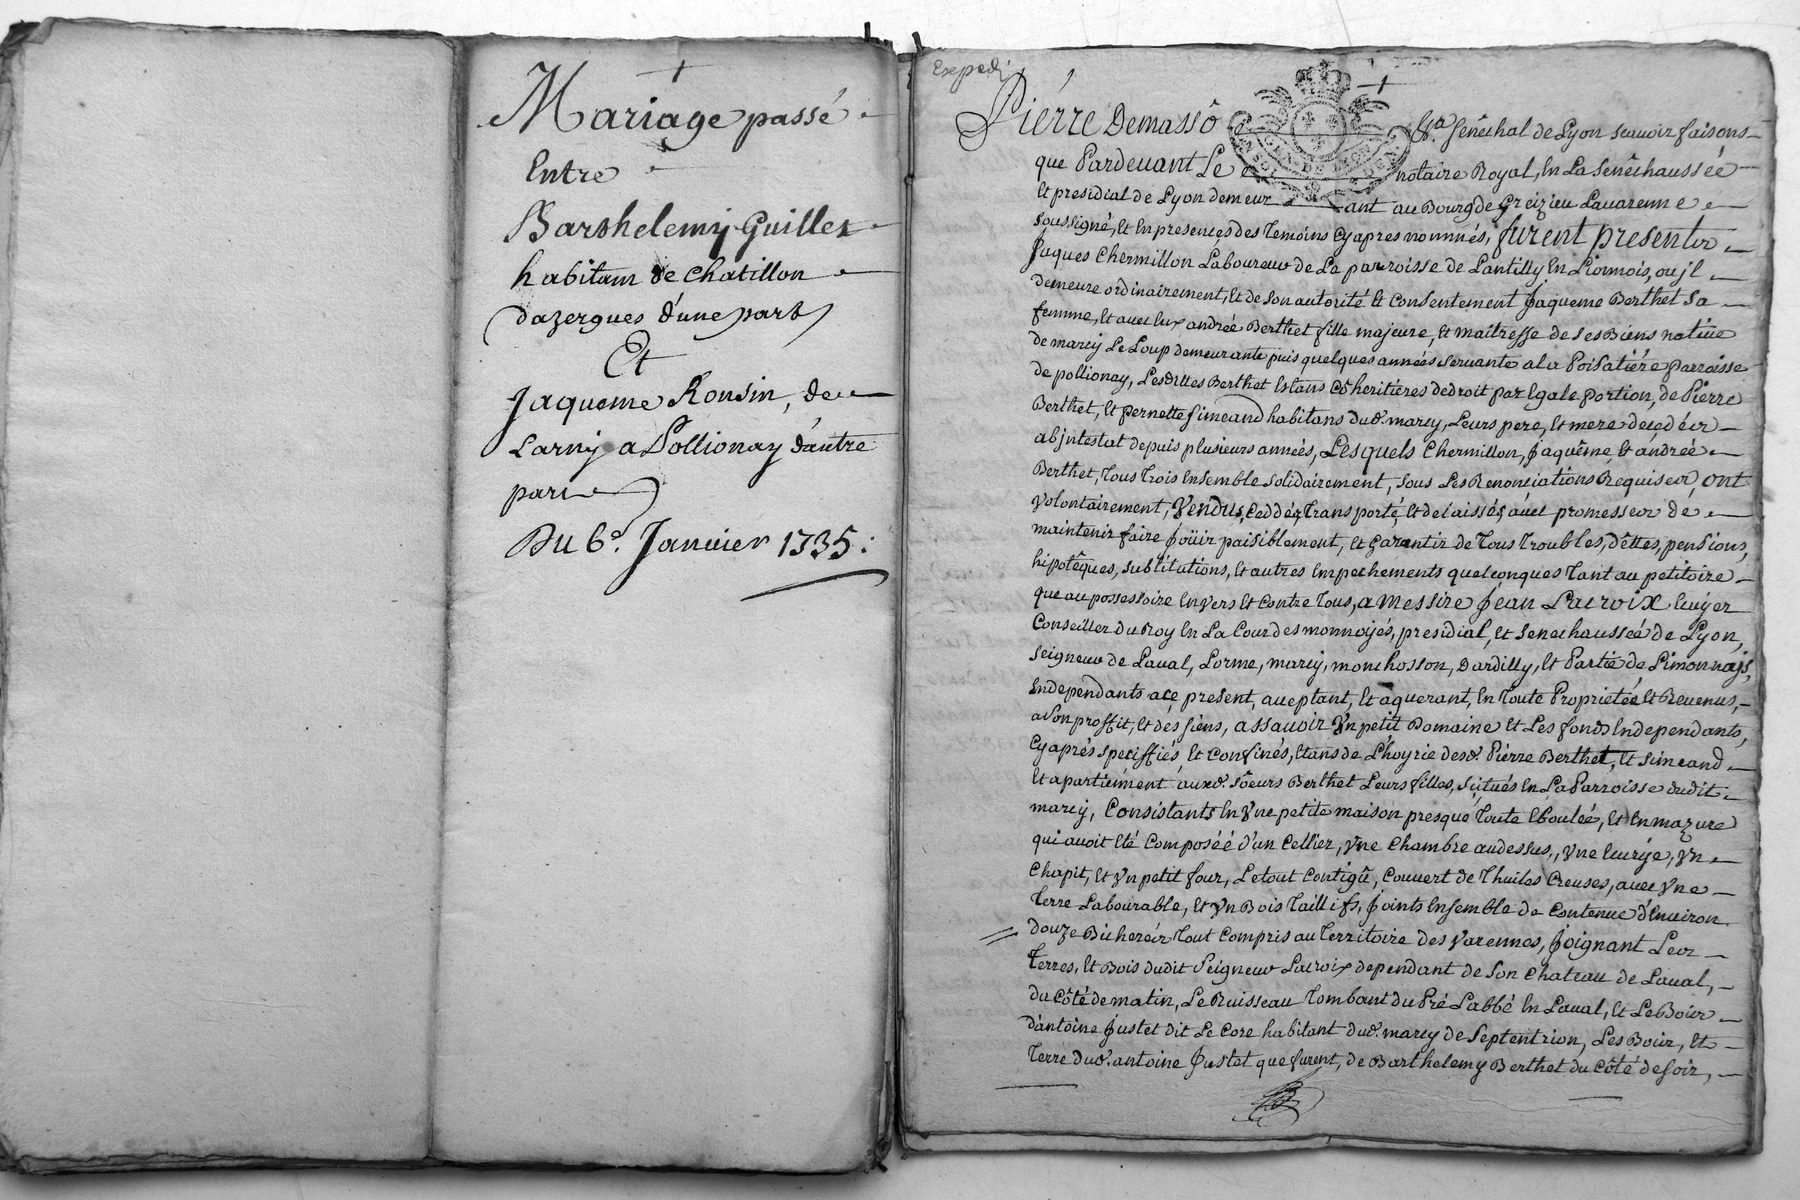 Mariage passé
Entre
Barthelemy Guillet
habitant de chatillon
dazergues d'une part
Et
Jaqueme Ronsin, de
Larny a Pollionay d'autre
part
Du 6e. Janvier 1735.
Expedi
Pierre Demasso Sénéchal de Lyon scavoir faisons
que Pardevant Le notaire Royal, En La Senéchaussée
Et presidial de Lyon demeurant au Bourg de Greizieu Lavarenne
soussigné, Et En presences des Temoins Cyapres nommés, furent presents
Jaques Chermillon Laboureur de La parroisse de Lantilly En Lionnois, ou jl
demeure ordinairement, Et de son autorité Et Consentement Jaqueme Berthet sa
femme, Et avec Eux andrée Berthet fille majeure, Et maitresse de ses Biens native
de marcy Le Loup demeurante puis quelques années servante a La Poisatière parroisse
de pollionay, Lesdittes Berthet Estans Coheritières de droit par Egale portion, de Pierre
Berthet, Et pernette Simeand habitans dud. marcy, Leurs pere, Et mere decedés
abjntestat depuis plusieurs années, Lesquels Chermillon, Jaquême Et andréé
Berthet, Tous Trois Ensemble solidairement, sous Les Renonciations Requises, ont
volontairement, Vendus, Ceddés, Transporté, Et delaissés, avec promesses de
maintenir faire Joüir paisiblement, Et Garantir de Tous Troubles, dettes, pensions,
hipotêques, substitutions, Et autres Empechements quelconques Tant au petitoire
que au possessoire Envers Et Contre Tous, a Messire Jean Lacroix Ecuyer
Conseiller du Roy En La Cour des monnoyés, presidial, Et Senechaussée de Lyon,
seigneur de Laval, Lorme, marcy, monchosson, Dardilly, Et Partie de Limonnais,
Independants a ce present, acceptant, Et aquerant, En Toute Propriétés Et Revenus,
a son proffit, Et des siens, assavoir Vn petit Domaine Et Les fonds Independants,
Cyaprés speciffiés, Et Confinés, Etans de L'hoyrie desd. Piérre Berthet, Et Simeand
Et apartienent auxd. soeurs Berthet Leurs filles, situés En La Parroisse dudit
marcy, Consistants En Vne petite maison presque Toute Eboulée, Et En mazure
qui avoit Eté Composéé d'un Cellier, Vne Chambre audessus, Vne Ecurye, Vn
Chapit, Et Vn petit four, Letout Contigû, Couvert de Thuiles Creuses, avec Vne
Terre Labourable, Et Vn Bois Taillifs, Joints Ensemble de Contenue d'Environ
douze Bicherées Tout Compris au Territoire des Varennes, Joignant Les
Terres, Et Bois dudit Seigneur Lacroix dependant de son Chateau de Laval,
du Côté de matin, Le Ruisseau Tombant du Pré Labbé En Laval, Et Le Bois
d'antoine Justet dit Le Core habitant dud. marcy de Septentrion, Les Bois, Et
Terre dud. antoine Justet que furent, de Barthelemy Berthet du Côté de soir,